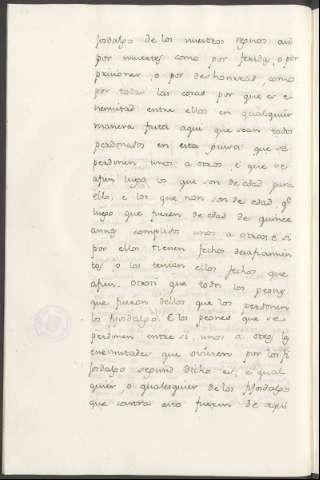 fijosdalgo de los nuestros regnos asi
por muertes como por feridas, o por
prisiones, o por deshonrras como
por todas las cosas por que es e
nemistad entre ellos en qualquier
manera fasta aqui que sean todos
perdonados en esta guisa que se
perdonen unos a otros, e que se
afien luego los que son de edad para
ello, e los que non son de edad q.e
luego que fueren de edad de quince
annos complidos unos a otros, e si
por ellos tienen fechos desafiamien
tos, o los tenian ellos fechos que
afien. Otrosi que todos los peones
que fueron dellos que los perdonen
los fijosdalgo. E los peones que se
perdonen entre si unos a otros las
enemistades que ovieren por los fi
josdalgo segund dicho es, e qual
quier, o qualesquier de los fijosdalgo
que contra esto fueren de aqui